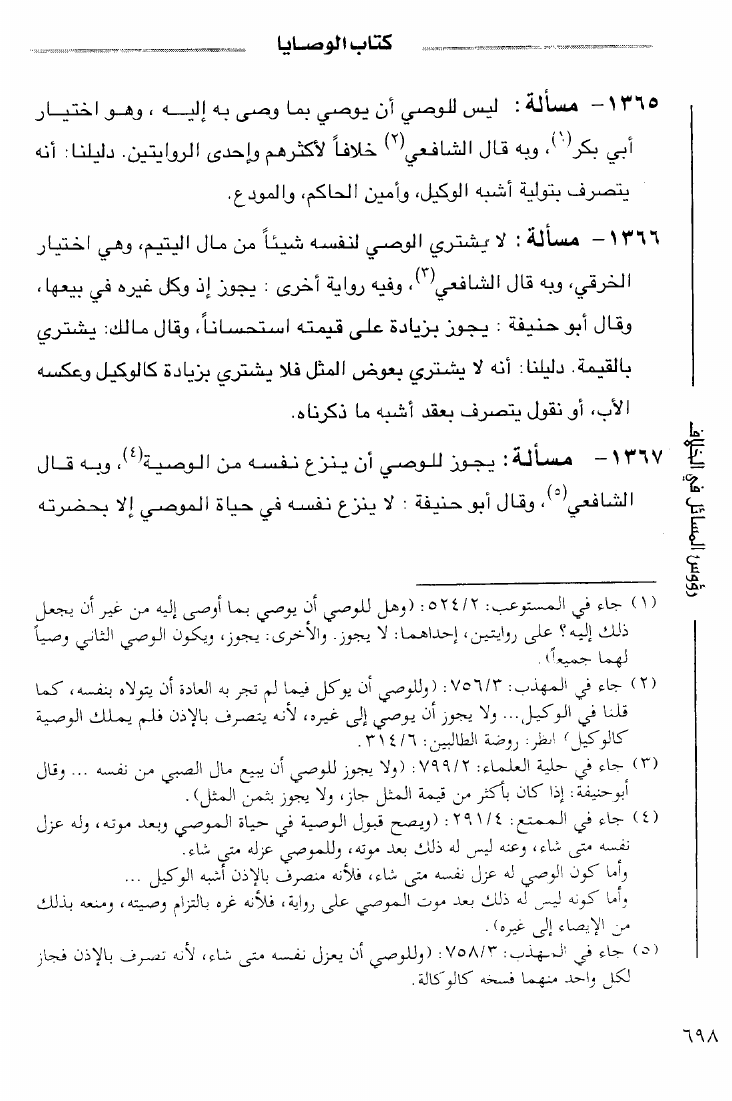 كتاب الوصايا
١٣٦٥- مسألة: ليس للوصي أن يوصي بما وصى به إليه ، وهو اختيار
أبي بكر(١)، وبه قال الشافعي(٢) خلافاً لأكثرهم وإحدى الروايتين. دليلنا: أنه
يتصرف بتولية أشبه الوكيل، وأمين الحاكم، والمودع.
١٣٦٦- مسألة: لا يشتري الوصي لنفسه شيئاً من مال اليتيم، وهي اختيار
الخرقي، وبه قال الشافعي(٣)، وفيه رواية أخرى : يجوز إذ وكل غيره في بيعها،
وقال أبو حنيفة : يجوز بزيادة على قيمته استحساناً، وقال مالك: يشتري
بالقيمة. دليلنا: أنه لا يشتري بعوض المثل فلا يشتري بزيادة كالوكيل وعكسه
الأب، أو نقول يتصرف بعقد أشبه ما ذكرناه.
١٣٦٧- مسألة: يجوز للوصي أن ينزع نفسه من الوصية(٤)، وبه قال
الشافعي(٥)، وقال أبو حنيفة : لا ينزع نفسه في حياة الموصي إلا بحضرته
رؤوس المسائل في الخلاف
(١) جاء في المستوعب: ٥٢٤/٢: (وهل للوصي أن يوصي بما أوصى إليه من غير أن يجعل
ذلك إليه؟ على روايتين، إحداهما: لا يجوز. والأخرى: يجوز، ويكون الوصي الثاني وصياً
لهما جميعاً).
(٢) جاء في المهذب: ٧٥٦/٣: (وللوصي أن يوكل فيما لم تجر به العادة أن يتولاه بنفسه، كما
قلنا في الوكيل... ولا يجوز أن يوصي إلى غيره، لأنه يتصرف بالإذن فلم يملك الوصية
كالوكيل) انظر: روضة الطالبين: ٣١٤/٦.
(٣) جاء في حلية العلماء: ٧٩٩/٢: (ولا يجوز للوصي أن يبيع مال الصبي من نفسه ... وقال
أبوحنيفة: إذا كان بأكثر من قيمة المثل جاز، ولا يجوز بثمن المثل).
(٤) جاء في الممتع: ٢٩١/٤: (ويصح قبول الوصية في حياة الموصي وبعد موته، وله عزل
نفسه متى شاء، وعنه ليس له ذلك بعد موته، وللموصي عزله متى شاء.
وأما كون الوصي له عزل نفسه متى شاء، فلأنه متصرف بالإذن أشبه الوكيل ...
وأما كونه ليس له ذلك بعد موت الموصي على رواية، فلأنه غره بالتزام وصيته، ومنعه بذلك
من الإيصاء إلى غيره).
(٥) جاء في المهذب: ٧٥٨/٣: (وللوصي أن يعزل نفسه متى شاء، لأنه تصرف بالإذن فجاز
لكل واحد منهما فسخه كالوكالة.
٦٩٨